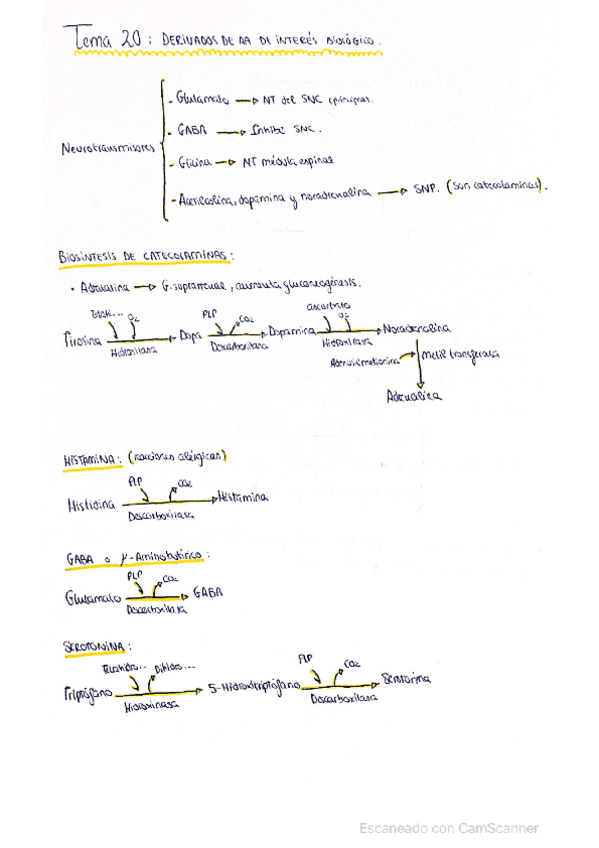 Tema 20: DERIVADOS DE AA DE INTERÉS BIOLÓGICO.
Neurotransmisores
- Glutamato → NT del SNC (principal).
- GABA → Inhibe SNC.
- Glicina → NT médula espinal
- Acetilcolina, dopamina y noradrenalina → SNP. (Son catecolaminas).
BIOSÍNTESIS DE CATECOLAMINAS:
• Adrenalina → G. suprarrenal, aumenta gluconeogénesis.
O2 PLP CO2 ascorbato O2
Tirosina → Dopa → Dopamina → Noradrenalina
Hidroxilasa Descarboxilasa Hidroxilasa
Adenosilmetionina metil transferasa
Adrenalina
HISTAMINA: (reacciones alérgicas)
PLP CO2
Histidina → Histamina
Descarboxilasa
GABA o γ-Aminobutírico:
PLP CO2
Glutamato → GABA
Descarboxilasa
SEROTONINA:
Tetrahidro.. Dihidro... PLP CO2
Triptófano → 5-Hidroxitriptófano → Serotonina
Hidroxilasa Descarboxilasa
Escaneado con CamScanner